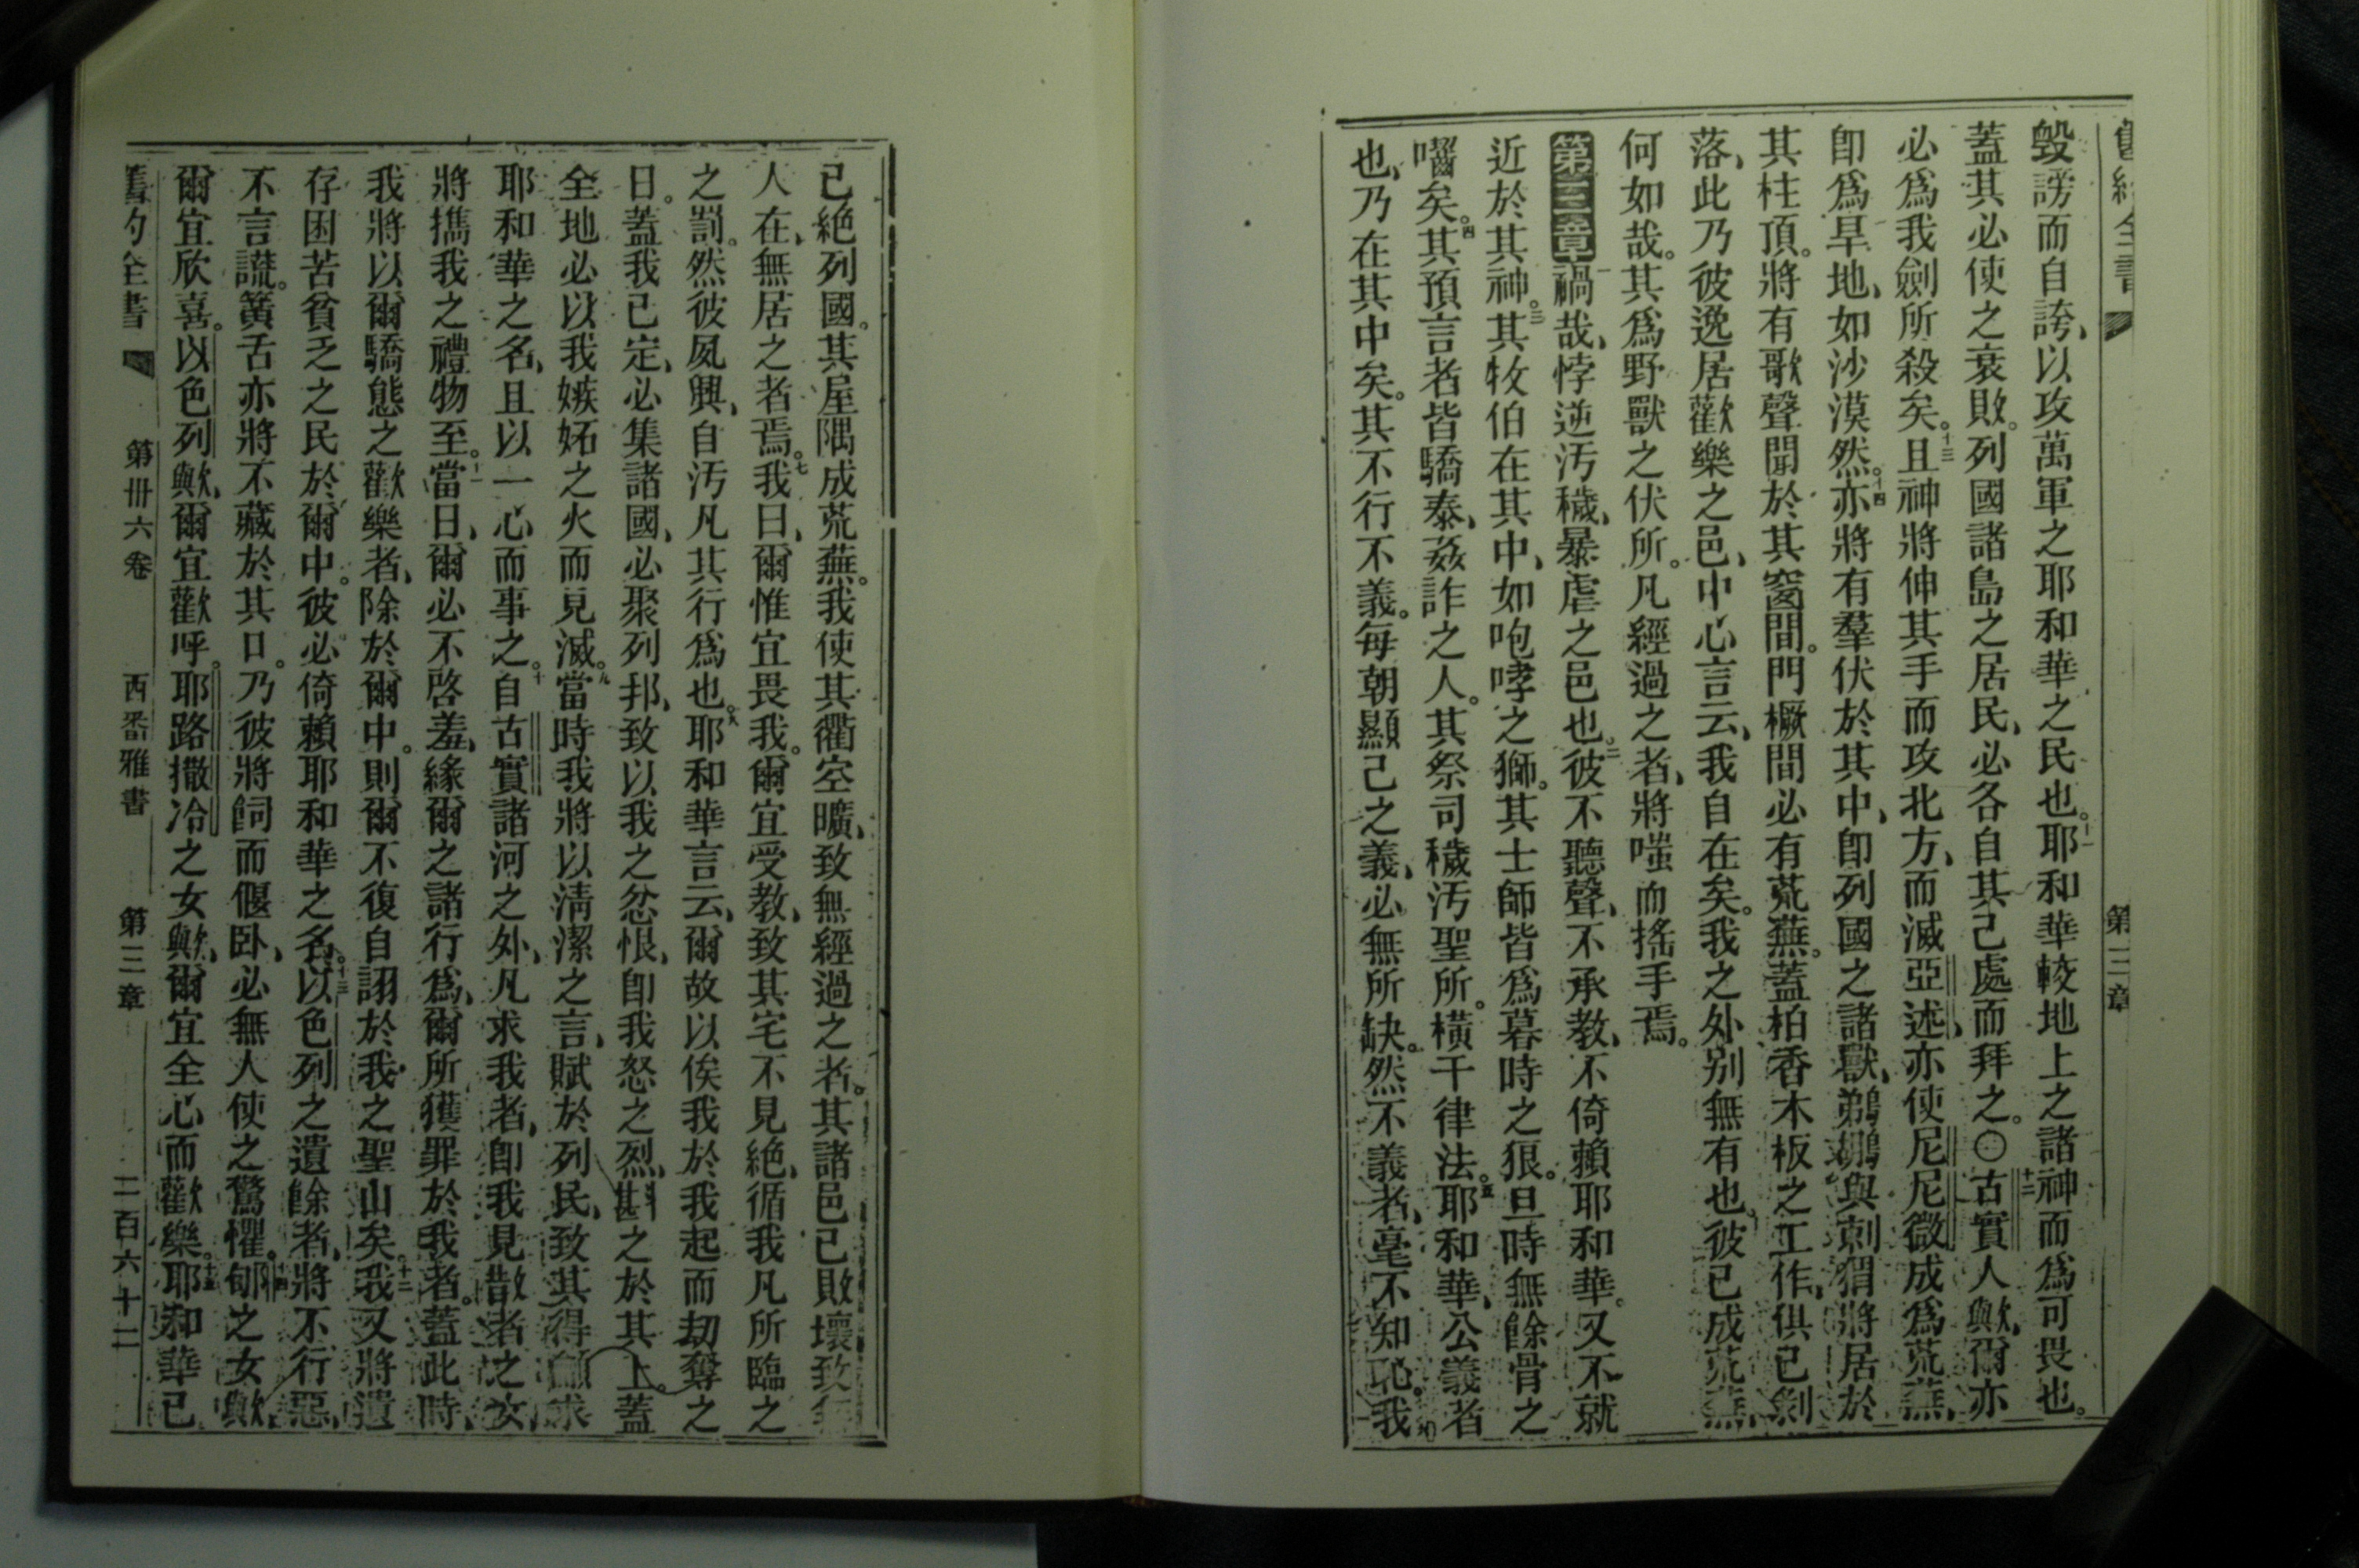 舊約全書 第二章
毀謗而自誇、以攻萬軍之耶和華之民也。十一耶和華較地上之諸神而爲可畏也。
蓋其必使之衰敗。列國諸島之居民、必各自其己處而拜之。〇十二古實人歟、爾亦
必爲我劍所殺矣。十三且神將伸其手而攻北方、而滅亞述、亦使尼尼微成爲荒蕪、
卽爲旱地、如沙漠然。十四亦將有羣伏於其中、卽列國之諸獸、鵜鶘與刺猬將居於
其柱頂。將有歌聲聞於其窗間。門橛間必有荒蕪。蓋柏香木板之工作、俱已剝
落、此乃彼逸居歡樂之邑、中心言云、我自在矣。我之外别無有也。彼已成荒蕪、
何如哉。其爲野獸之伏所。凡經過之者、將嗤而搖手焉。
第三章 禍哉、悖逆汚穢、暴虐之邑也。二彼不聽聲、不承教、不倚賴耶和華。又不就
近於其神。三其牧伯在其中、如咆哮之獅。其士師皆爲暮時之狼。旦時無餘骨之
囓矣。四其預言者皆驕泰、姦詐之人。其祭司穢汚聖所。橫干律法。五耶和華、公義者
也、乃在其中矣。其不行不義。每朝顯己之義、必無所缺。然不義者、毫不知恥。六我
已絕列國。其屋隅成荒蕪。我使其衢空曠、致無經過之者。其諸邑已敗壞致無
人在、無居之者焉。七我曰、爾惟宜畏我。爾宜受教、致其宅不見絕、循我凡所臨之
之罰。然彼夙興、自汚凡其行爲也。八耶和華言云、爾故以俟我於我起而劫奪之
日。蓋我已定、必集諸國、必聚列邦、致以我之忿恨、卽我怒之烈、斟之於其上。蓋
全地必以我嫉妬之火而見滅。九當時我將以淸潔之言、賦於列民、致其得籲求
耶和華之名、且以一心而事之。十自古實諸河之外、凡求我者、卽我見散者之女、
將攜我之禮物至。十一當日、爾必不啓羞、緣爾之諸行爲、爾所獲罪於我者。蓋此時、
我將以爾驕態之歡樂者、除於爾中。則爾不復自詡於我之聖山矣。十二我又將遺
存困苦貧乏之民於爾中。彼必倚賴耶和華之名。十三以色列之遺餘者、將不行惡、
不言謊。簧舌亦將不藏於其口。乃彼將飼而偃卧、必無人使之驚懼。十四郇之女歟、
爾宜欣喜。以色列歟、爾宜歡呼。耶路撒冷之女歟、爾宜全心而歡樂。十五耶和華已
舊約全書 第卅六卷 西番雅書 第三章 二百六十二